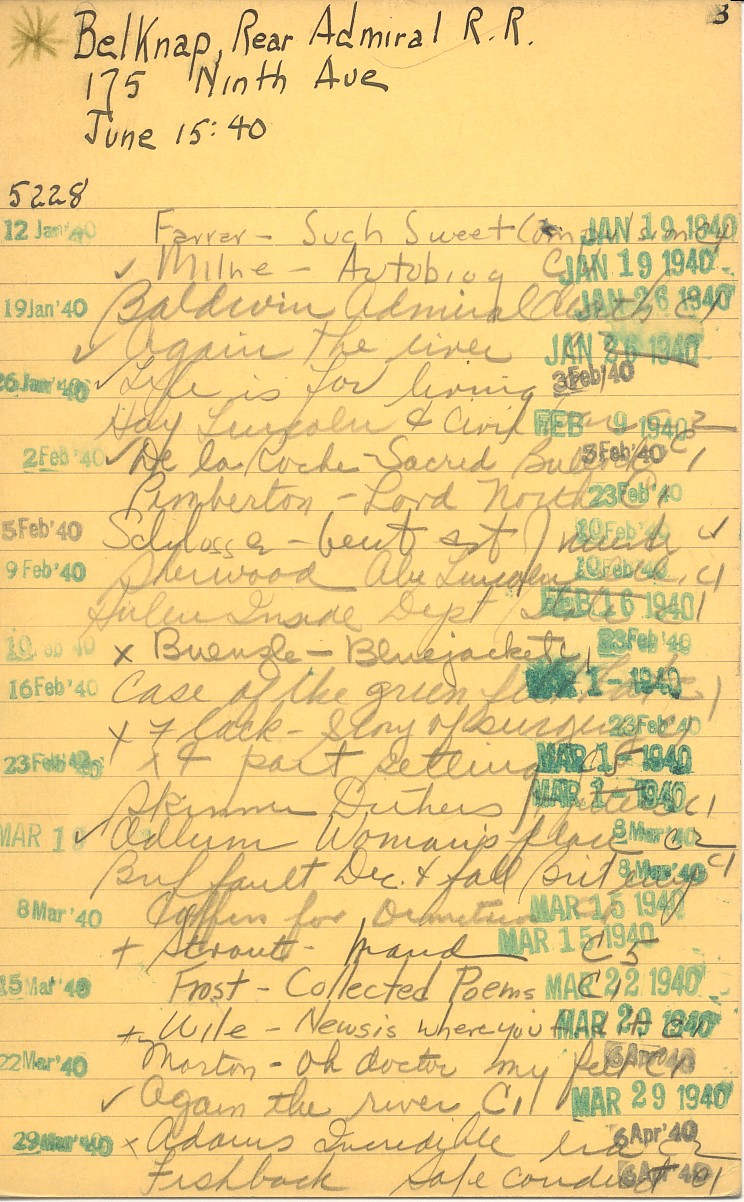 3
Belknap, Rear Admiral R.R.
175 Ninth Ave
June 15:40
5228
12 Jan '40 Farrar - Such Sweet JAN 19 1940
✓ Milne - Autobiog C1 JAN 19 1940
19 Jan '40 Baldwin Admiral Death C1 JAN 26 1940
✓ Again the river JAN 26 1940
26 Jan '40 ✓ Life is for living 3 Feb '40
Hay Lincoln & Civil War C2 FEB 9 1940
2 Feb '40 ✓ De la Roche - Sacred Bullock C1 3 Feb '40
Pemberton - Lord North 23 Feb '40
5 Feb '40 10 Feb '40
9 Feb '40 Sherwood Abe Lincoln C1 10 Feb '40
Inside Dept State C1 FEB 16 1940
10 Feb '40 x Buenzle - Bluejacket 23 Feb '40
16 Feb '40 Case of the green C1 MAR 1 - 1940
x Story of surgery C1 23 Feb '40
23 Feb '40 x 4 part setting C5 MAR 1 - 1940
Skinner C1 MAR 1 - 1940
MAR 1 ✓ Adlum Woman's place C2 8 Mar '40
Dec. & fall Brit C1 8 Mar '40
8 Mar '40 Coffin for MAR 15 1940
+ Strout - Maud C5 MAR 15 1940
15 Mar '40 Frost - Collected Poems C1 MAR 22 1940
+ Wile - News is where you C1 MAR 29 1940
22 Mar '40 Morton - Oh doctor my feet C1 6 Apr '40
✓ Again the river C1 MAR 29 1940
29 Mar '40 x Adams Incredible era C2 6 Apr '40
Fishback Safe conduct C1 6 Apr '40